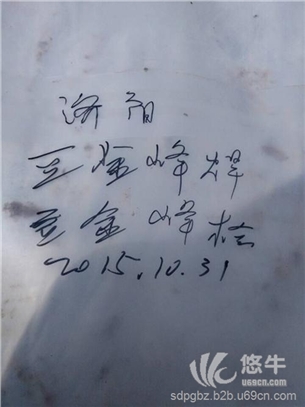 洛阳
金峰焊
金峰检
2015.10.31
悠牛
u69cn.com
sdpgbz.b2b.u69cn.com